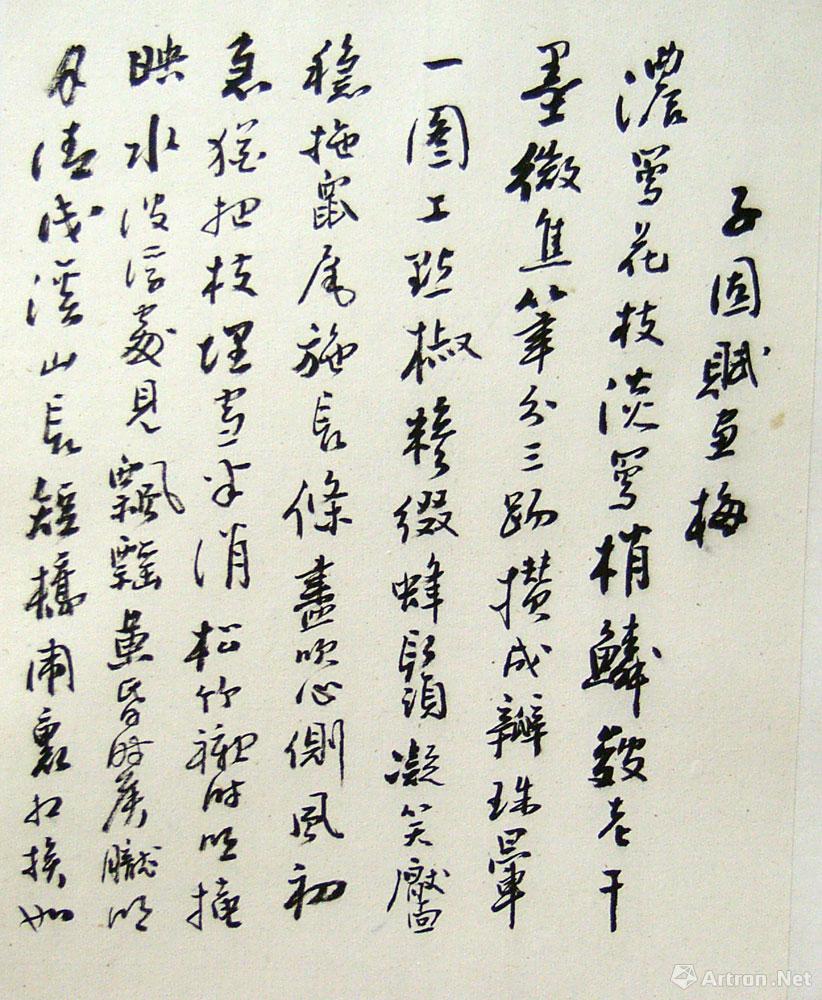 子固賦画梅
濃寫花枝淡寫梢鱗皴老干
墨微焦筆分三踢攒成瓣珠暈
一图工點椒糝綴蜂鬚凝笑靨
穩拖鼠尾施長條盡吹心側風初
急猶把枝埋雪半消松竹襯时明掩
映水波浮處見飄飖黄昏时候朧明
月清浅溪山長短橋闹裏相挨如
Artron.Net